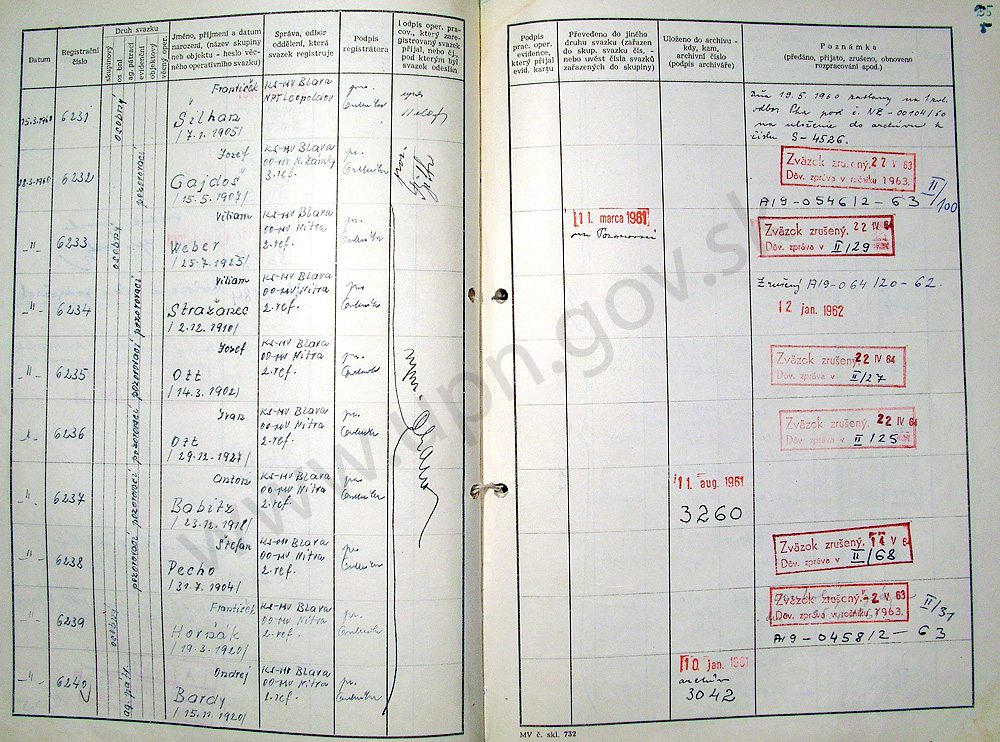 Datum
Registrační číslo
Druh svazku
skupinový
osobní
ag. pátrací
evidenční
objektový
věcný oper.
Jméno, příjmení a datum narození, (název skupiny neb objektu - heslo věcného operativního svazku)
Správa, odbor oddělení, která svazek registruje
Podpis registrátora
Podpis oper. pracov., který zaregistrovaný svazek přijal, nebo čj., pod kterým byl svazek odeslán
15.3.1960 6231 osobný František Šilhan /7.1.1905/ KS-MV Blava NPT Leopoldov
22.3.1960 6232 pozorovací Jozef Gajdoš /15.5.1907/ KS-MV Blava 3.ref.
-"- 6233 osobný Viliam Weber /25.7.1925/ KS-MV Blava OO-MV Nitra 2.ref.
-"- 6234 pozorovací Viliam Stražanec /2.12.1910/ KS-MV Blava OO-MV Nitra 2.ref.
-"- 6235 pozorovací Jozef Ott /14.3.1902/ KS-MV Blava OO-MV Nitra 2.ref.
-"- 6236 pozorovací Ivan Ott /29.12.1927/ KS-MV Blava OO-MV Nitra 2.ref.
-"- 6237 pozorovací Anton Babitz /23.12.1918/ KS-MV Blava OO-MV Nitra 2.ref.
-"- 6238 pozorovací Štefan Pecho /31.7.1904/ KS-MV Blava OO-MV Nitra 2.ref.
-"- 6239 osobný František Horňák /19.3.1920/ KS-MV Blava OO-MV Nitra 2.ref.
-"- 6240 ag. pátr. Ondrej Bardy /15.11.1920/ KS-MV Blava OO-MV Nitra 2.ref.
Podpis prac. oper. evidence, který přijal evid. kartu
Převedeno do jiného druhu svazku (zařazen do skup. svazku čís. - nebo uvést čísla svazků zařazených do skupiny)
Uloženo do archivu - kdy, kam, archivní číslo (podpis archiváře)
Poznámka
(předáno, přijato, zrušeno, obnoveno rozpracování apod.)
Dňa 19.5.1960 zaslaný na 1.zvl.
odbor Pha pod č. NZ-00104/60
na uloženie do archívu k
číslu S-4526.
Zväzok zrušený. 22 V 63
Dôv. zpráva v ročníku 1963. II/100
A19-054612-63
11. marca 1961
na Pozorovací
Zväzok zrušený. 22 IV 64
Dôv. zpráva v II/29
Zrušený A19-064/20-62.
12 jan. 1962
Zväzok zrušený. 22 IV 64
Dôv. zpráva v II/27
Zväzok zrušený. 22 IV 64
Dôv. zpráva v II/25
11 aug. 1961
3260
Zväzok zrušený. 11 V 64
Dôv. zpráva v II/68
Zväzok zrušený. -2 V 63
Dôv. zpráva v ročníku 1963. II/31
A19-045812-63
10 jan. 1961
archív
3042
MV č. skl. 732
www.upn.gov.sk